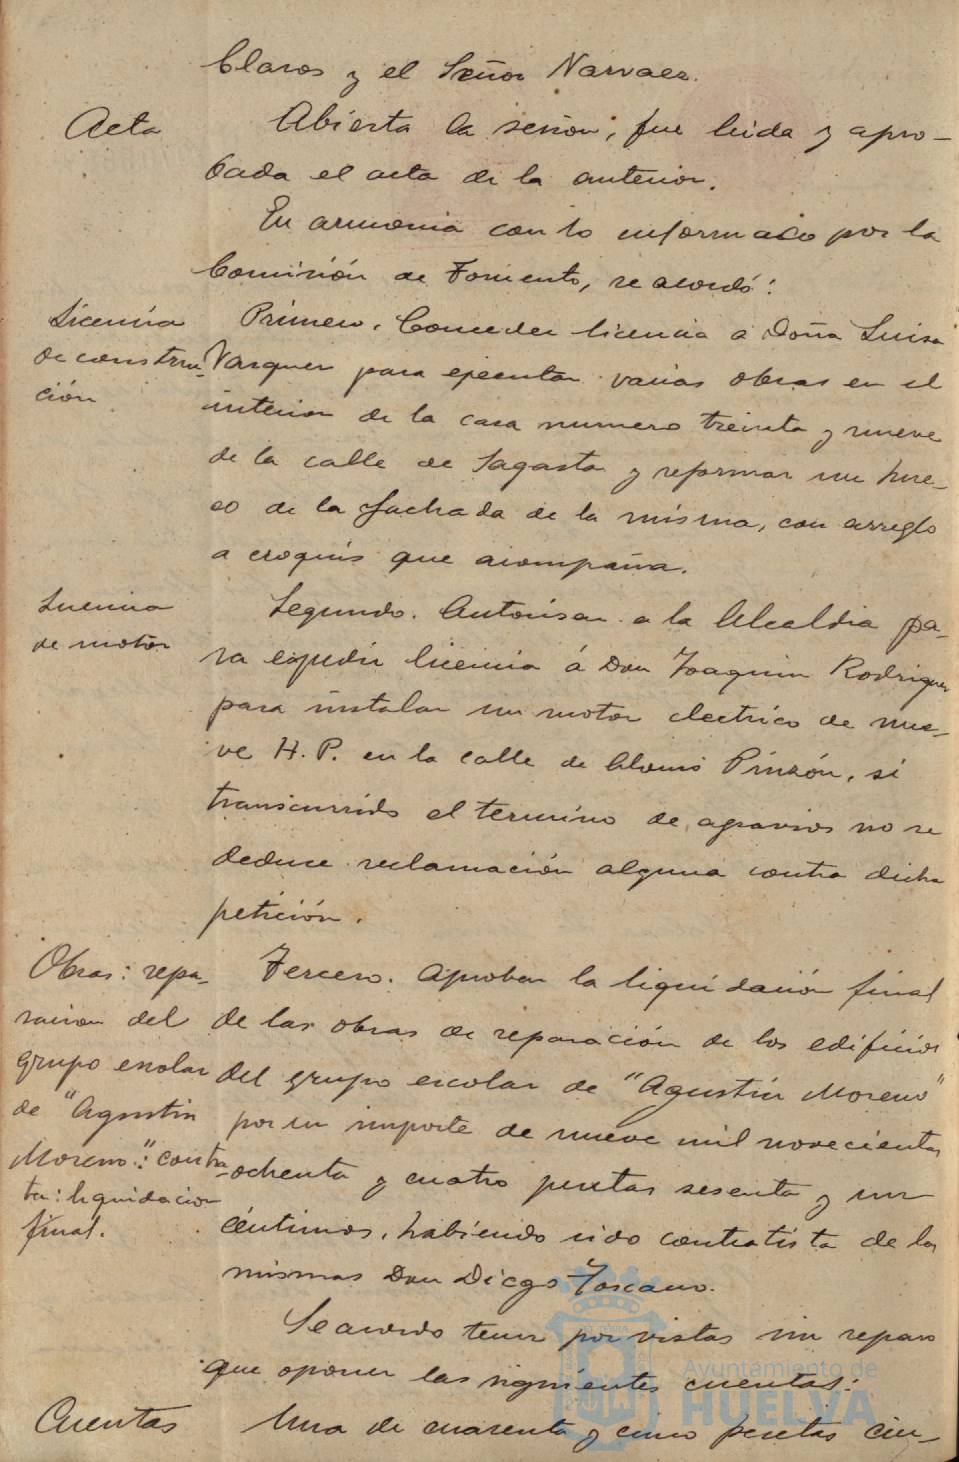 Claros y el Señor Narvaez.
Acta
Abierta la sesión, fue leida y apro-
bada el acta de la anterior.
En armonia con lo informado por la
Comisión de Fomento, se acordó:
Licencia
de construc-
ción
Primero. Conceder licencia a Doña Luisa
Vazquez para ejecutar varias obras en el
interior de la casa numero treinta y nueve
de la calle de Sagasta y reformar un hue-
co de la fachada de la misma, con arreglo
a croquis que acompaña.
Licencia
de motor
Segundo. Autorisar a la Alcaldia pa-
ra expedir licencia á Don Joaquin Rodriguez
para instalar un motor electrico de nue-
ve H.P. en la calle de Alonso Pinzón, si
transcurrido el termino de agravios no se
deduce reclamación alguna contra dicha
petición.
Obras: repa-
racion del
grupo escolar
de "Agustin
Moreno": contra-
ta: liquidacion
final.
Tercero. Aprobar la liquidación final
de las obras de reparación de los edificios
del grupo escolar de "Agustin Moreno"
por un importe de nueve mil novecientas
ochenta y cuatro pesetas sesenta y un
céntimos, habiendo sido contratista de las
mismas Don Diego Toscano.
Se acordo tener por vistas sin reparo
que oponer las siguientes cuentas:
Cuentas
Una de cuarenta y cinco pesetas cin-
Ayuntamiento de
HUELVA